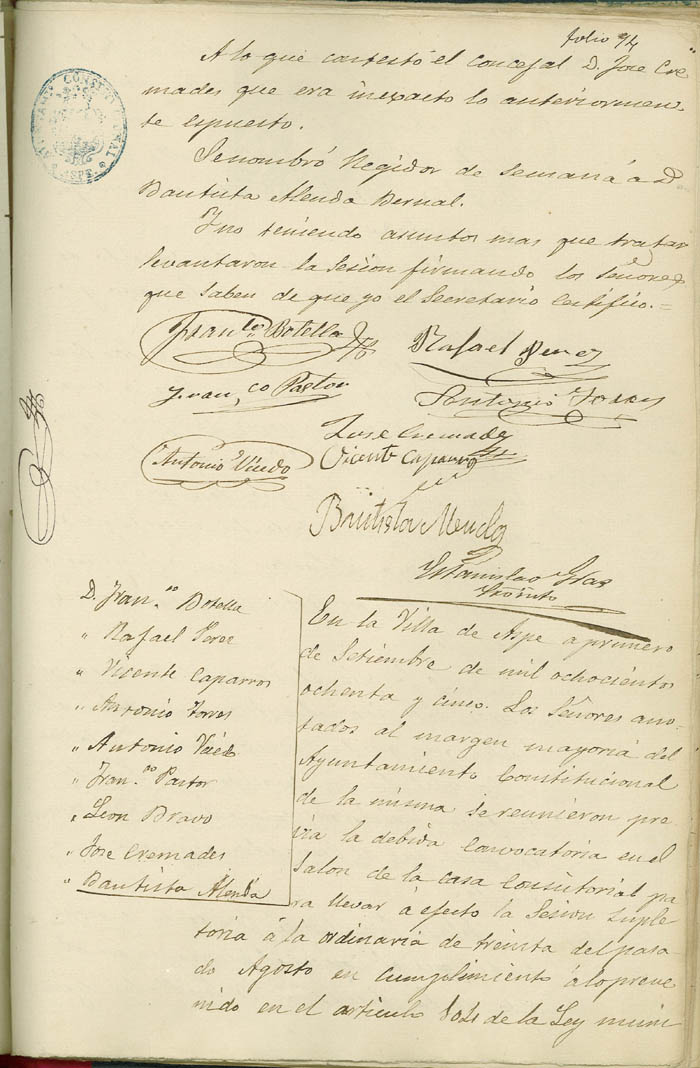 Folio 94
A lo que contestó el concejal D. Jose Cre
mades que era inexacto lo anteriormen
te espuesto.
Se nombró Regidor de semana á D
Bautista Alenda Bernal.
Y no teniendo asuntos mas que tratar
levantaron la Sesion firmando los Señores
que saben de que yo el Secretario Certifico.=
Franco Botella
Rafael Perez
Franco Pastor
Antonio Torres
Jose Cremades
Antonio Vicedo
Vicente Caparros
Bautista Alenda
Estanislao
D. Franco Botella
" Rafael Perez
" Vicente Caparros
" Antonio Torres
" Antonio Vicedo
" Franco Pastor
" Leon Bravo
" Jose Cremades
" Bautista Alenda
En la Villa de Aspe a primero
de Setiembre de mil ochocientos
ochenta y cinco. Los Señores ano-
tados al margen mayoria del
Ayuntamiento Constitucional
de la misma se reunieron pre
via la debida convocatoria en el
Salon de la casa Consistorial pa
ra llevar á efecto la Sesion suple
toria á la ordinaria de treinta del pasa
do Agosto en cumplimiento á lo preve
nido en el articulo 104 de la Ley muni